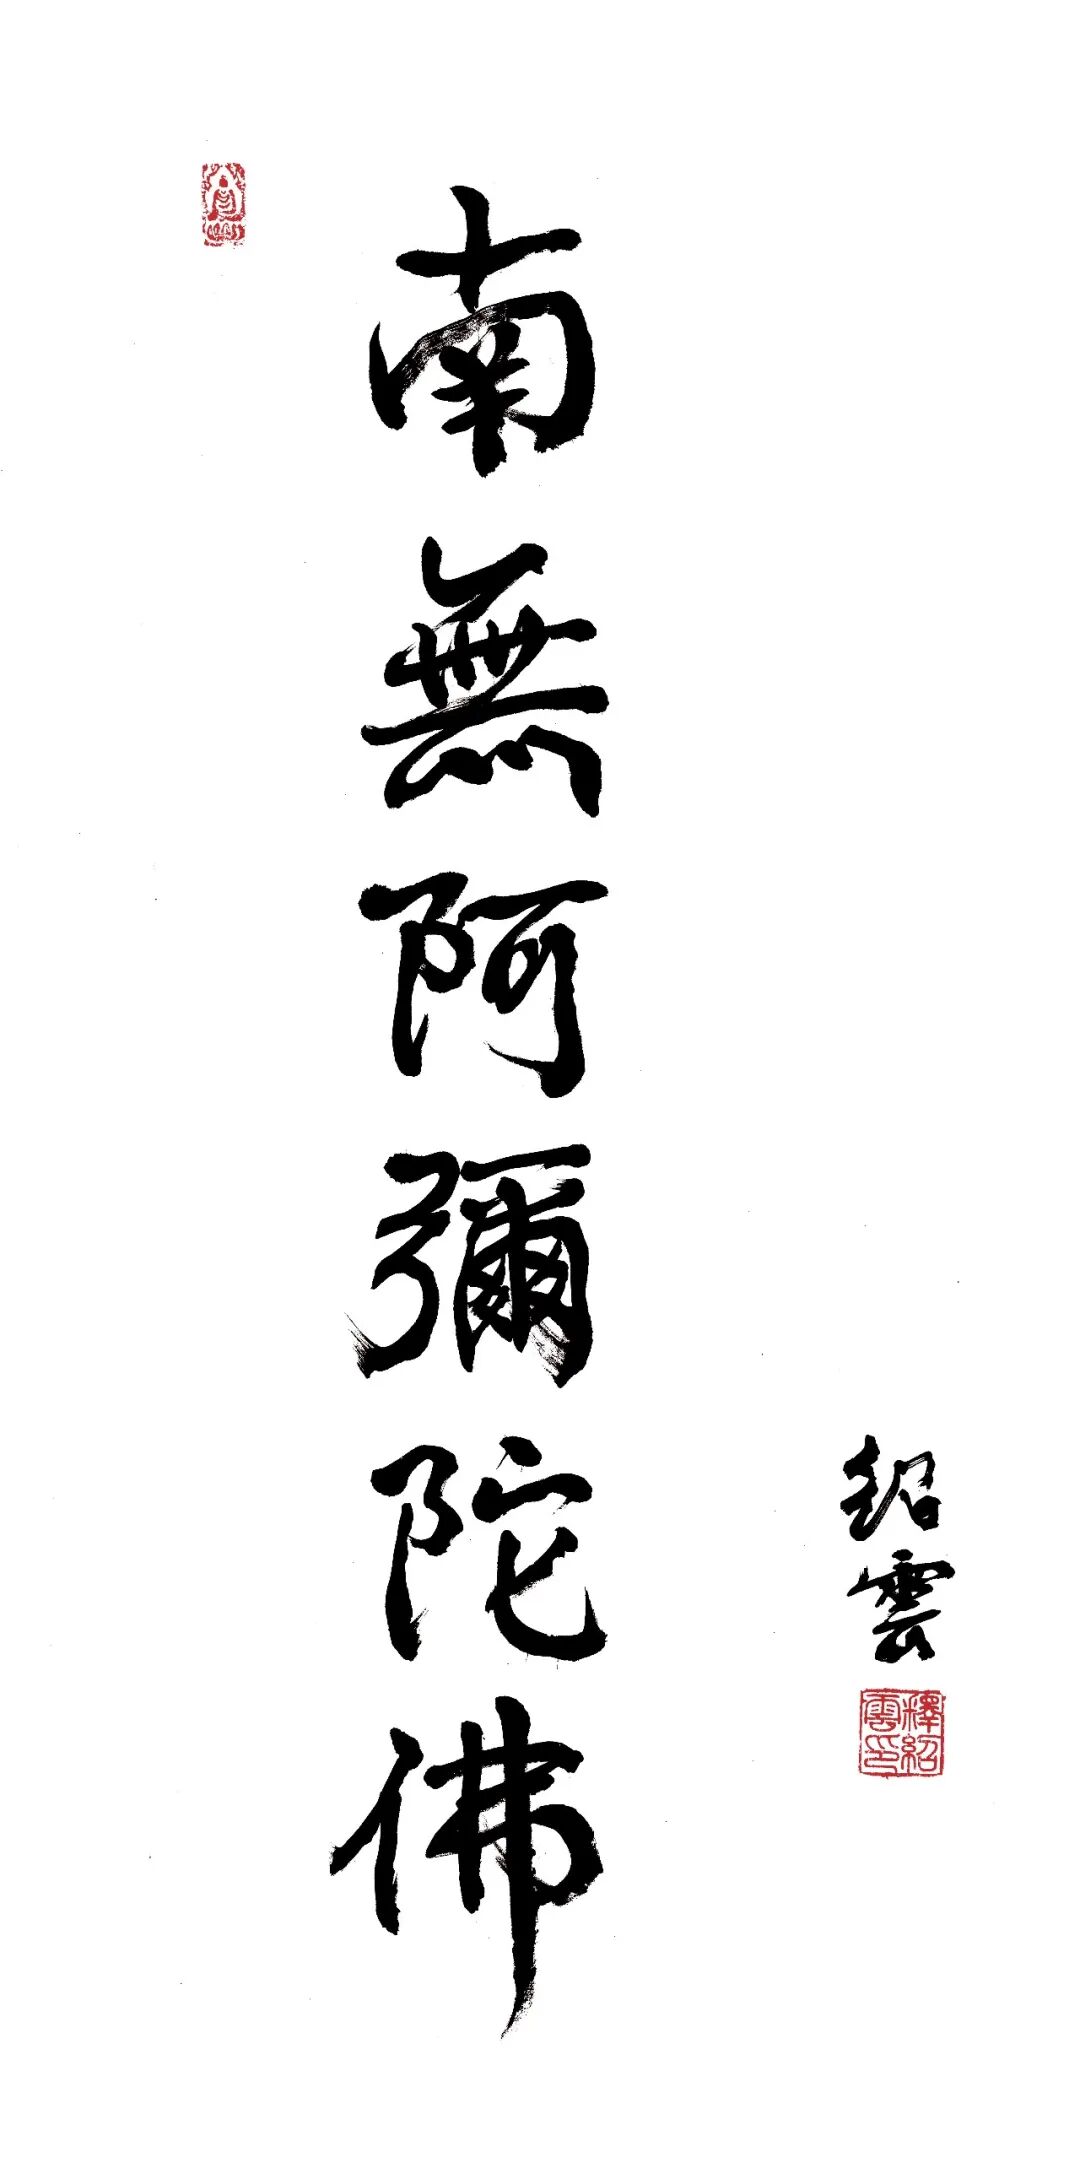 南無阿彌陀佛
紹雲
釋紹雲印